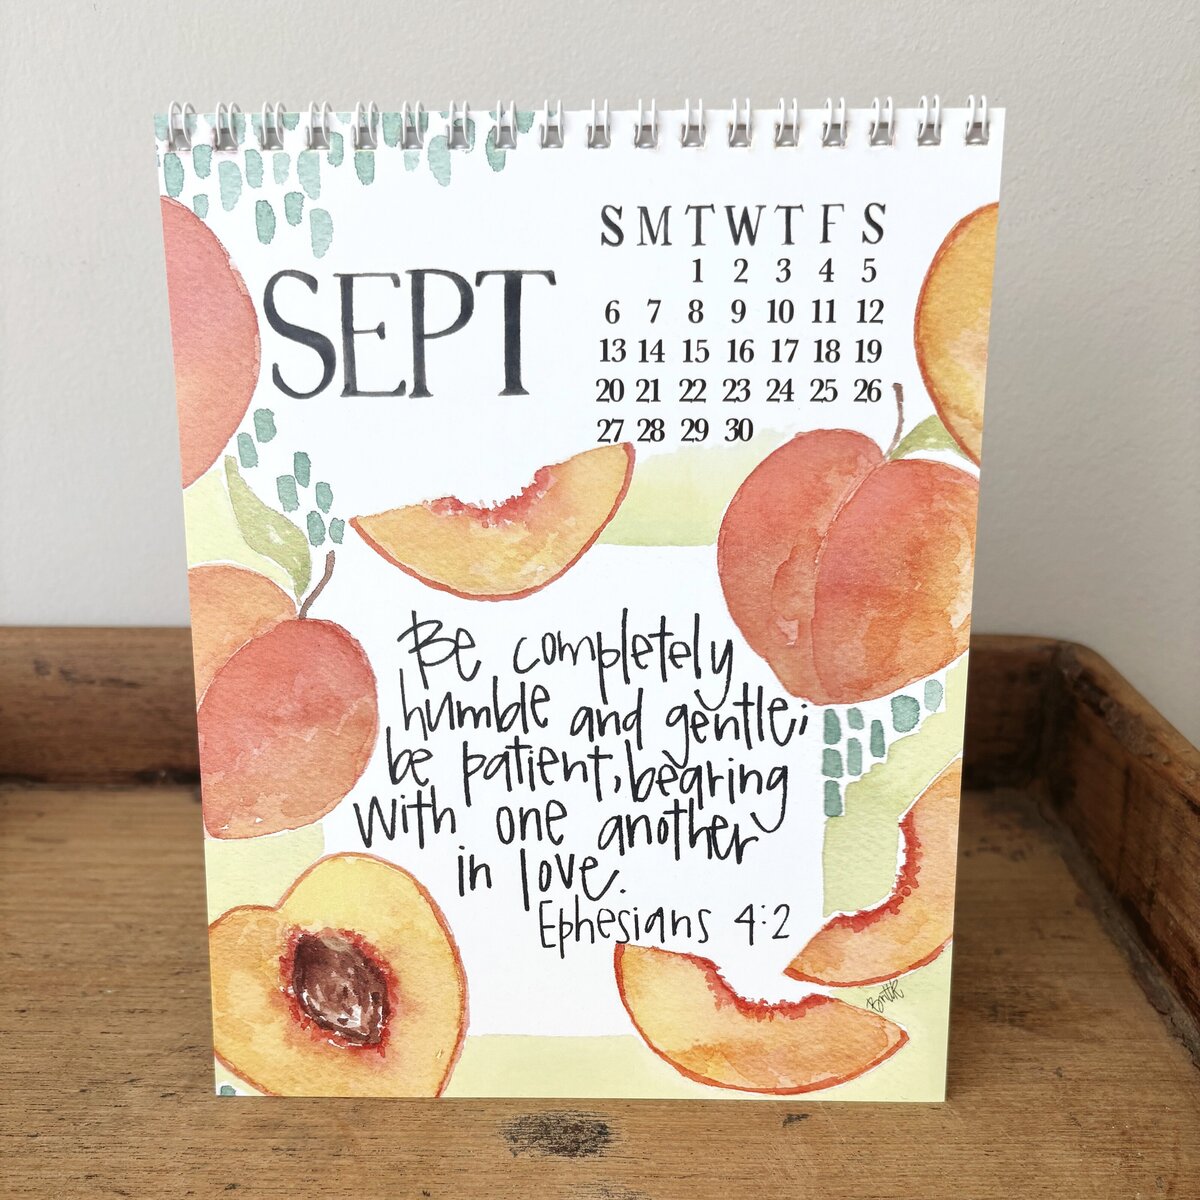 SEPT
S M T W T F S
1 2 3 4 5
6 7 8 9 10 11 12
13 14 15 16 17 18 19
20 21 22 23 24 25 26
27 28 29 30
Be completely
humble and gentle;
be patient, bearing
with one another
in love.
Ephesians 4:2